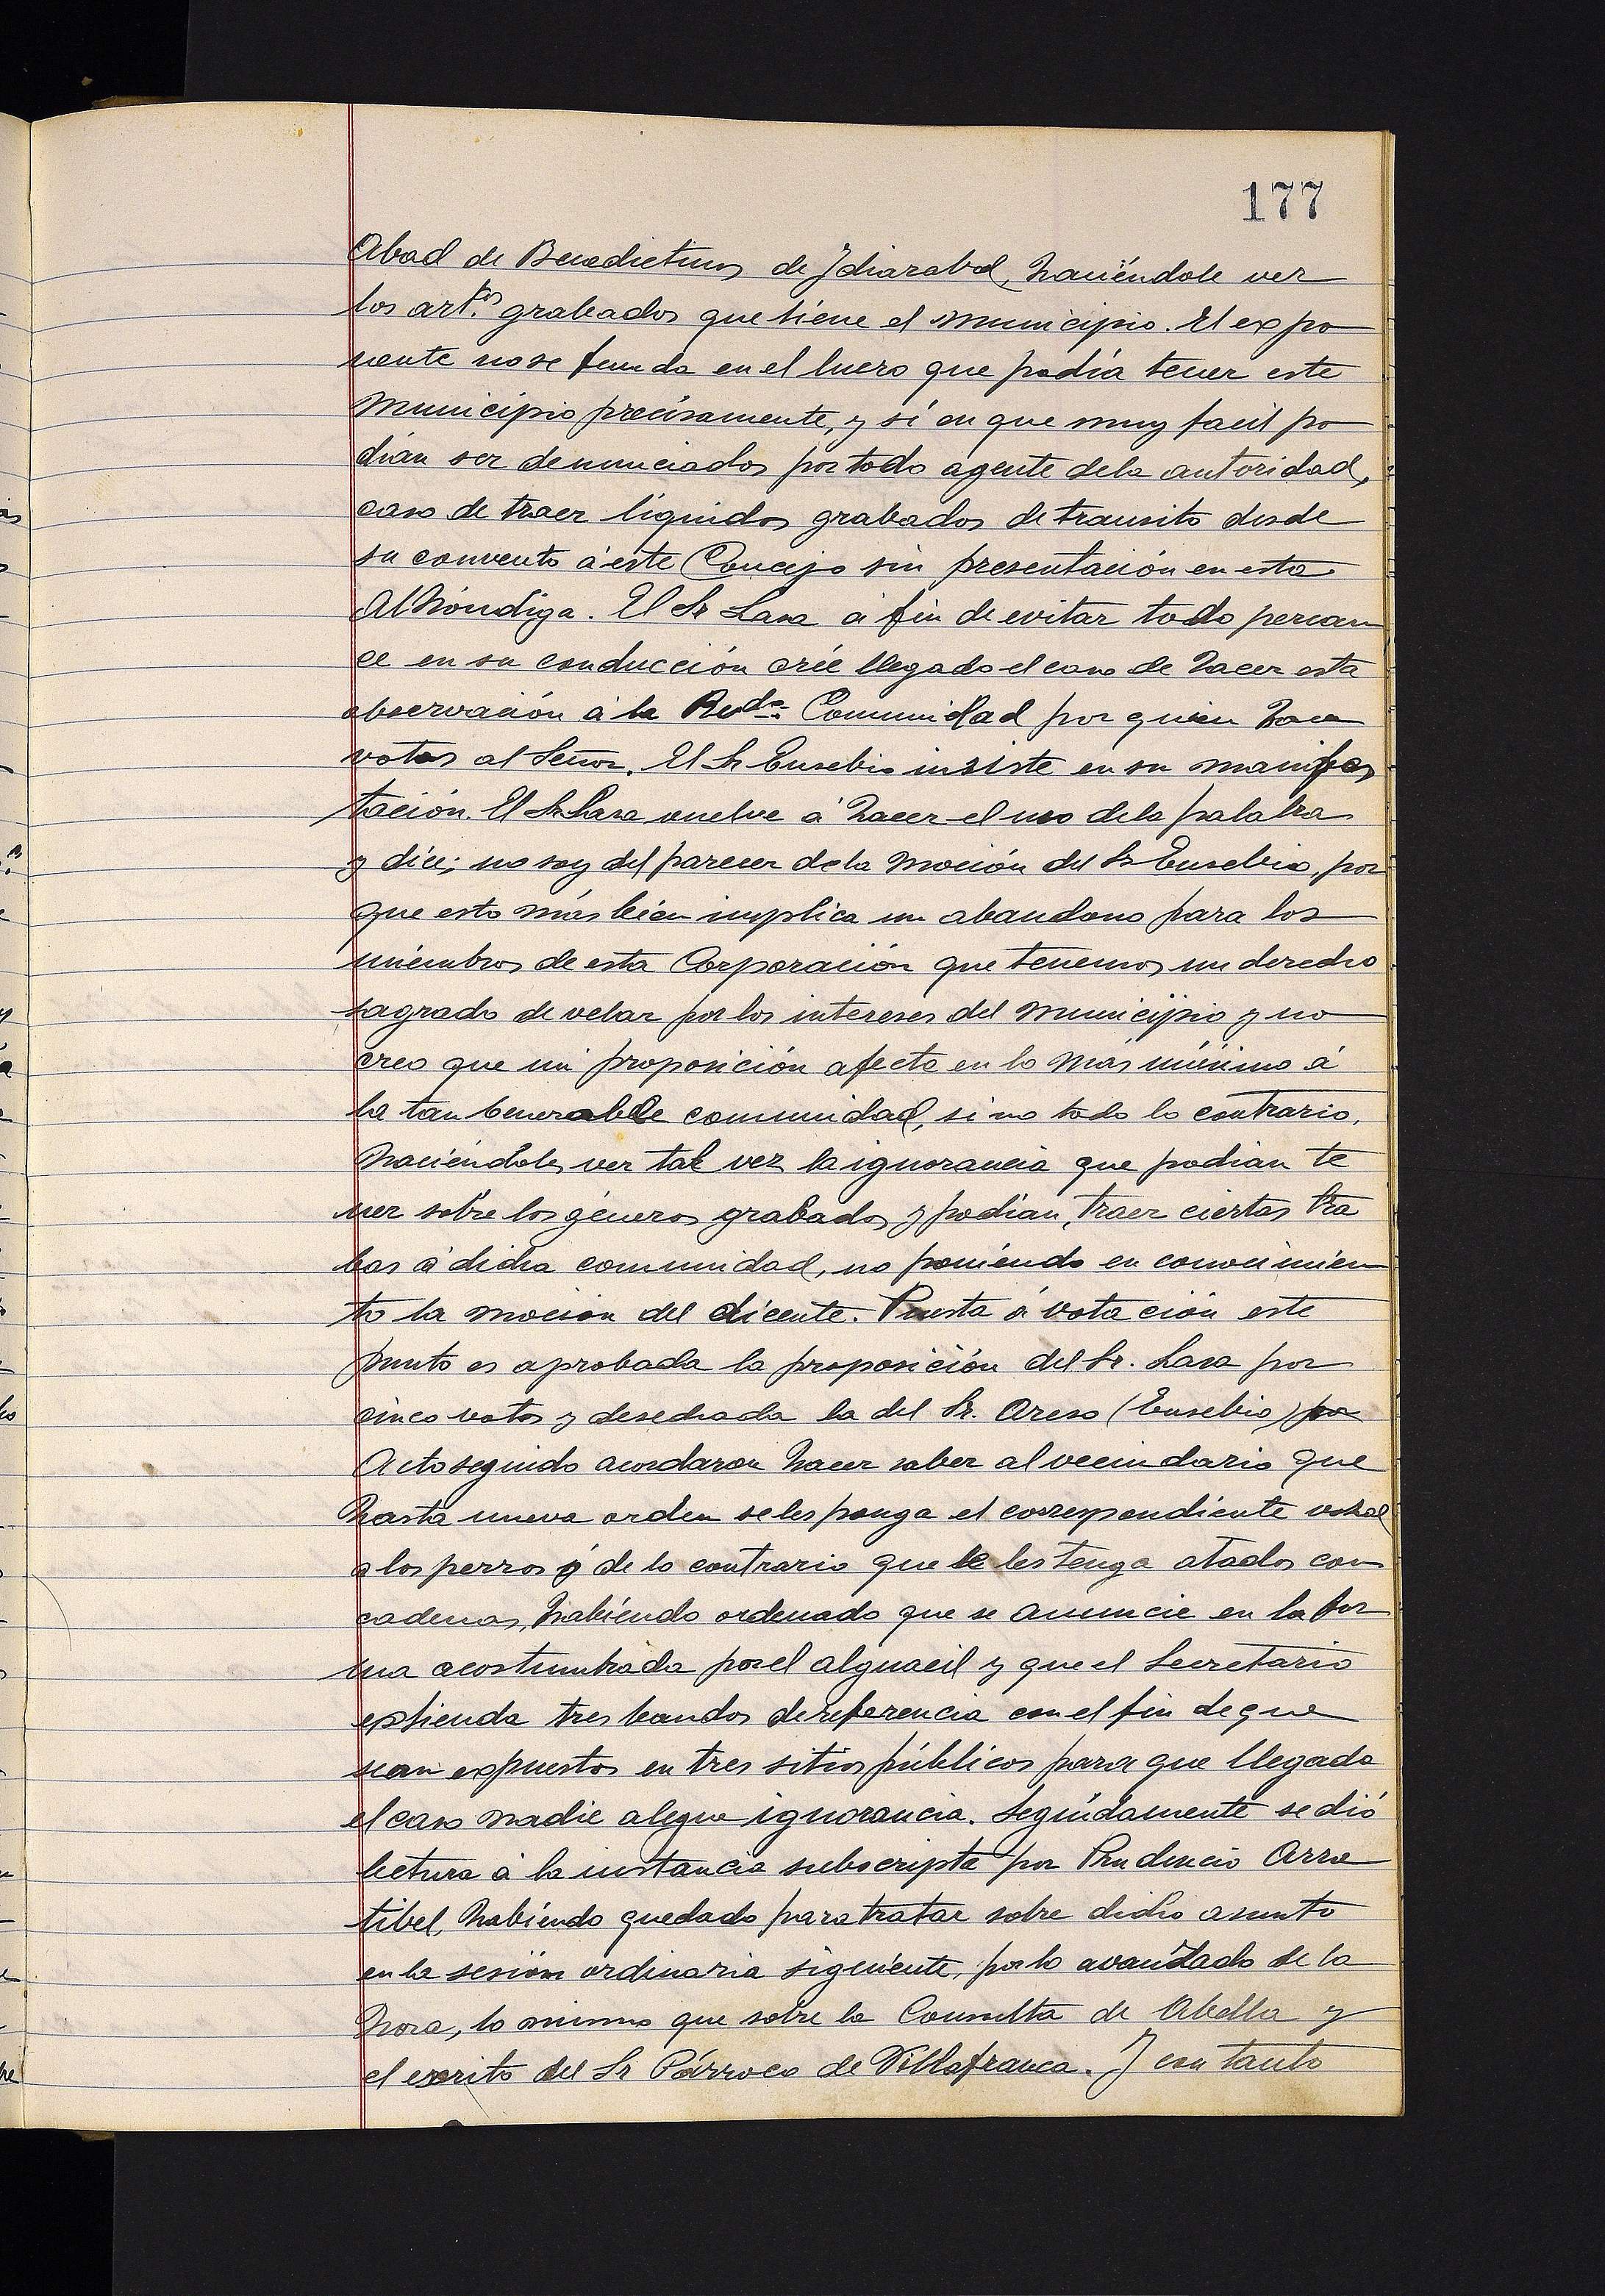 177
Abad de Benedictinos de Idiazabal, haciéndole ver
los artos. grabados que tiene el Municipio. El expo
nente no se funda en el lucro que podía tener este
Municipio precisamente, y sí en que muy facil po
dian ser denunciados por todo agente dela autoridad,
caso de traer liquidos grabados de transito desde
su convento á este Concejo sin presentación en esta
Alhóndiga. El Sr Lasa á fin de evitar todo percan
ce en su conducción crée llegado el caso de hacer esta
observación á la Rvda. Comunidad por quien hace
votos al Señor. El Sr Eusebio insiste en su manifes
tación. El Sr Lasa vuelve á hacer el uso dela palabra
y dice; no soy del parecer dela moción del Sr Eusebio, por
que esto más bien implica un abandono para los
miembros de esta Corporación que tenemos un derecho
sagrado de velar por los intereses del Municipio y no
creo que mi proposición afecte en lo más mínimo á
la tan benerable comunidad, sino todo lo contrario,
haciéndoles ver tal vez la ignorancia que podian te
ner sobre los géneros grabados y podían, traer ciertas tra
bas á dicha comunidad, no poniendo en conocimien
to la moción del dicente. Puesta á votación este
punto es aprobada la proposición del Sr. Lasa por
cinco votos y desechada la del Sr. Areso (Eusebio) por
Acto seguido acordaron hacer saber al vecindario que
hasta nueva orden se les ponga el correspondiente vozal
a los perros ó de lo contrario que se les tenga atados con
cadenas, habiendo ordenado que se anuncie en la for
ma acostumbrada por el alguacil y que el Secretario
extienda tres bandos de referencia con el fin de que
sean expuestos en tres sitios públicos para que llegado
el caso nadie alegue ignorancia. Seguidamente se dió
lectura á la instancia subscripta por Prudencio Arra
tibel, habiendo quedado para tratar sobre dicho asunto
en la sesión ordinaria siguiente, por lo avanzado de la
hora, lo mismo que sobre la Consulta de Abella y
el escrito del Sr Párroco de Villafranca. Y con tanto